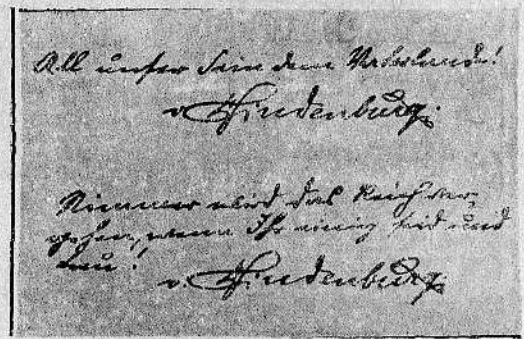 All unser Sein dem Vaterlande!
v. Hindenburg.
Nimmer wird das Reich ver-
gehen, wenn Ihr einig seid und
treu!
v. Hindenburg.